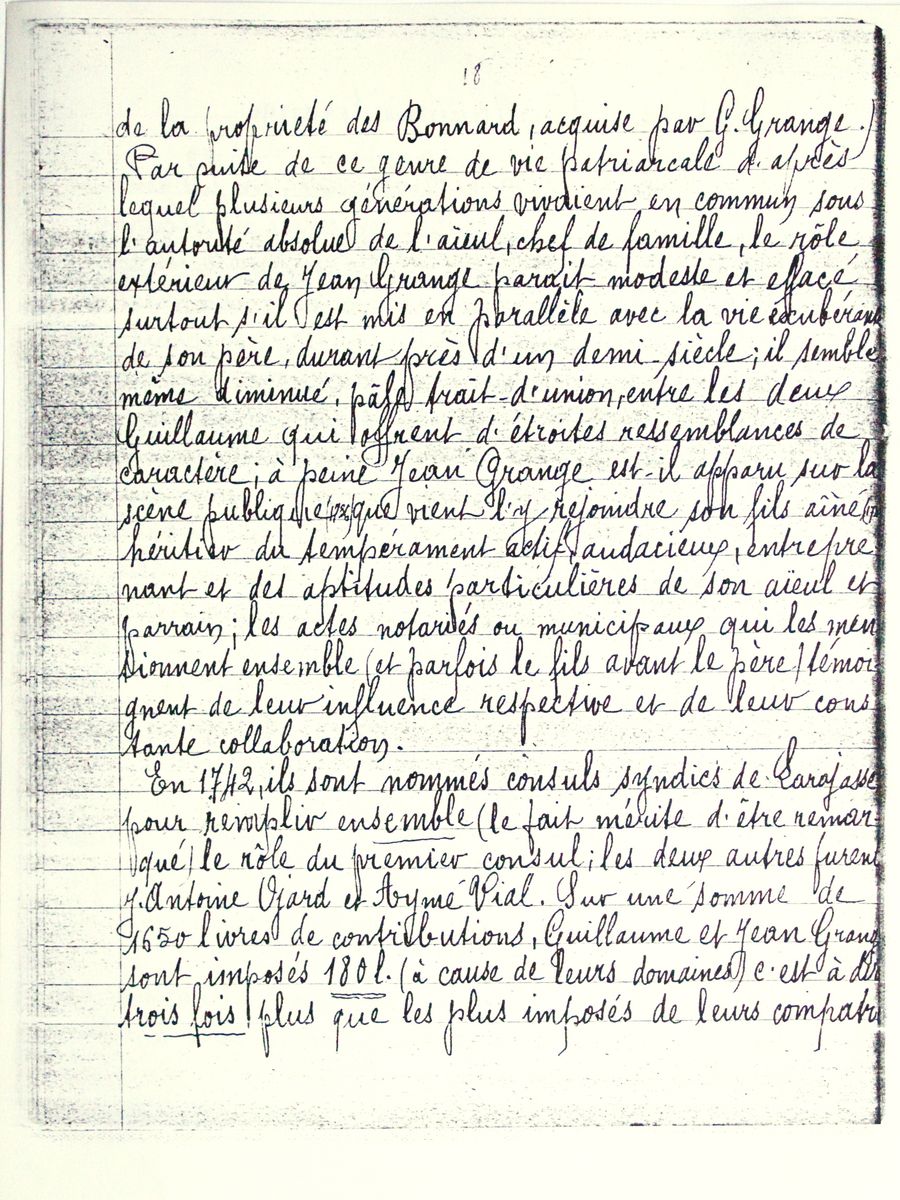 18
de la propriété des Bonnard, acquise par G. Grange.)
Par suite de ce genre de vie patriarcale d'après
lequel plusieurs générations vivaient en commun sous
l'autorité absolue de l'aïeul, chef de famille, le rôle
extérieur de Jean Grange paraît modeste et effacé
surtout s'il est mis en parallèle avec la vie exubérant
de son père, durant près d'un demi-siècle; il semble
même diminué, pâle trait-d'union, entre les deux
Guillaume qui offrent d'étroites ressemblances de
caractère; à peine Jean Grange est-il apparu sur la
scène publique que vient l'y rejoindre son fils aîné
héritier du tempérament actif, audacieux, entrepre
nant et des aptitudes particulières de son aïeul et
parrain; les actes notariés ou municipaux qui les men
tionnent ensemble (et parfois le fils avant le père) témoi-
gnent de leur influence respective et de leur cons
tante collaboration.
En 1742, ils sont nommés consuls syndics de Larajasse
pour remplir ensemble (le fait mérite d'être remar-
qué) le rôle du premier consul; les deux autres furent
J. Antoine Ojard et Aymé Vial. Sur une somme de
1650 livres de contributions, Guillaume et Jean Grang
sont imposés 180 l. (à cause de leurs domaines) c'est à dir
trois fois plus que les plus imposés de leurs compatri